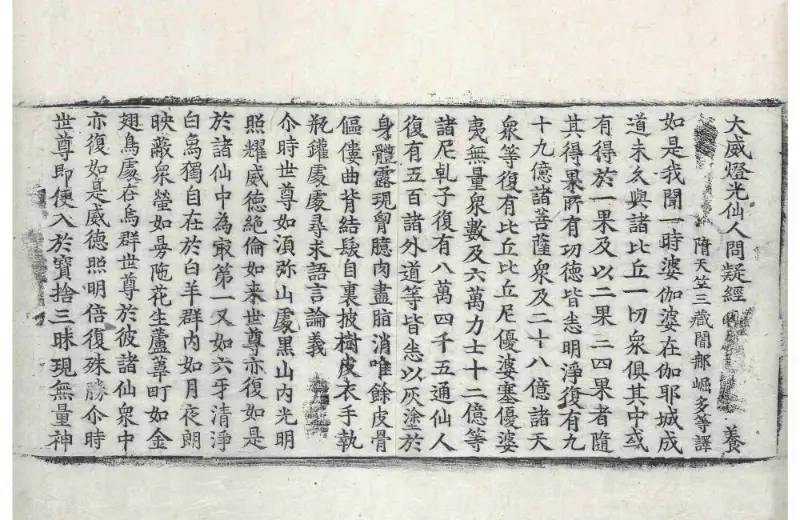 大威燈光仙人問疑經 養
隋天竺三藏闍那崛多等譯
如是我聞一時婆伽婆在伽耶城成
道未久與諸比丘一切衆俱其中或
有得於一果及以二果三四果者隨
其得果所有功德皆悉明淨復有九
十九億諸菩薩衆及二十八億諸天
衆等復有比丘比丘尼優婆塞優婆
夷無量衆數及六萬力士十二億等
諸尼乹子復有八萬四千五通仙人
復有五百諸外道等皆悉以灰塗於
身體露現胷臆肉盡脂消唯餘皮骨
傴僂曲背結髮自裹披樹皮衣手執
瓶鑵處處尋求語言論義
尒時世尊如須弥山處黒山内光明
照耀威徳絶倫如来世尊亦復如是
於諸仙中為㝡第一又如六牙清淨
白象獨自在於白羊群内如月夜朗
映蔽衆螢如曼陁花生蘆葦町如金
翅鳥處在烏群世尊於彼諸仙衆中
亦復如是威徳照明倍復殊勝尒時
世尊即便入於寶捨三昧現無量神